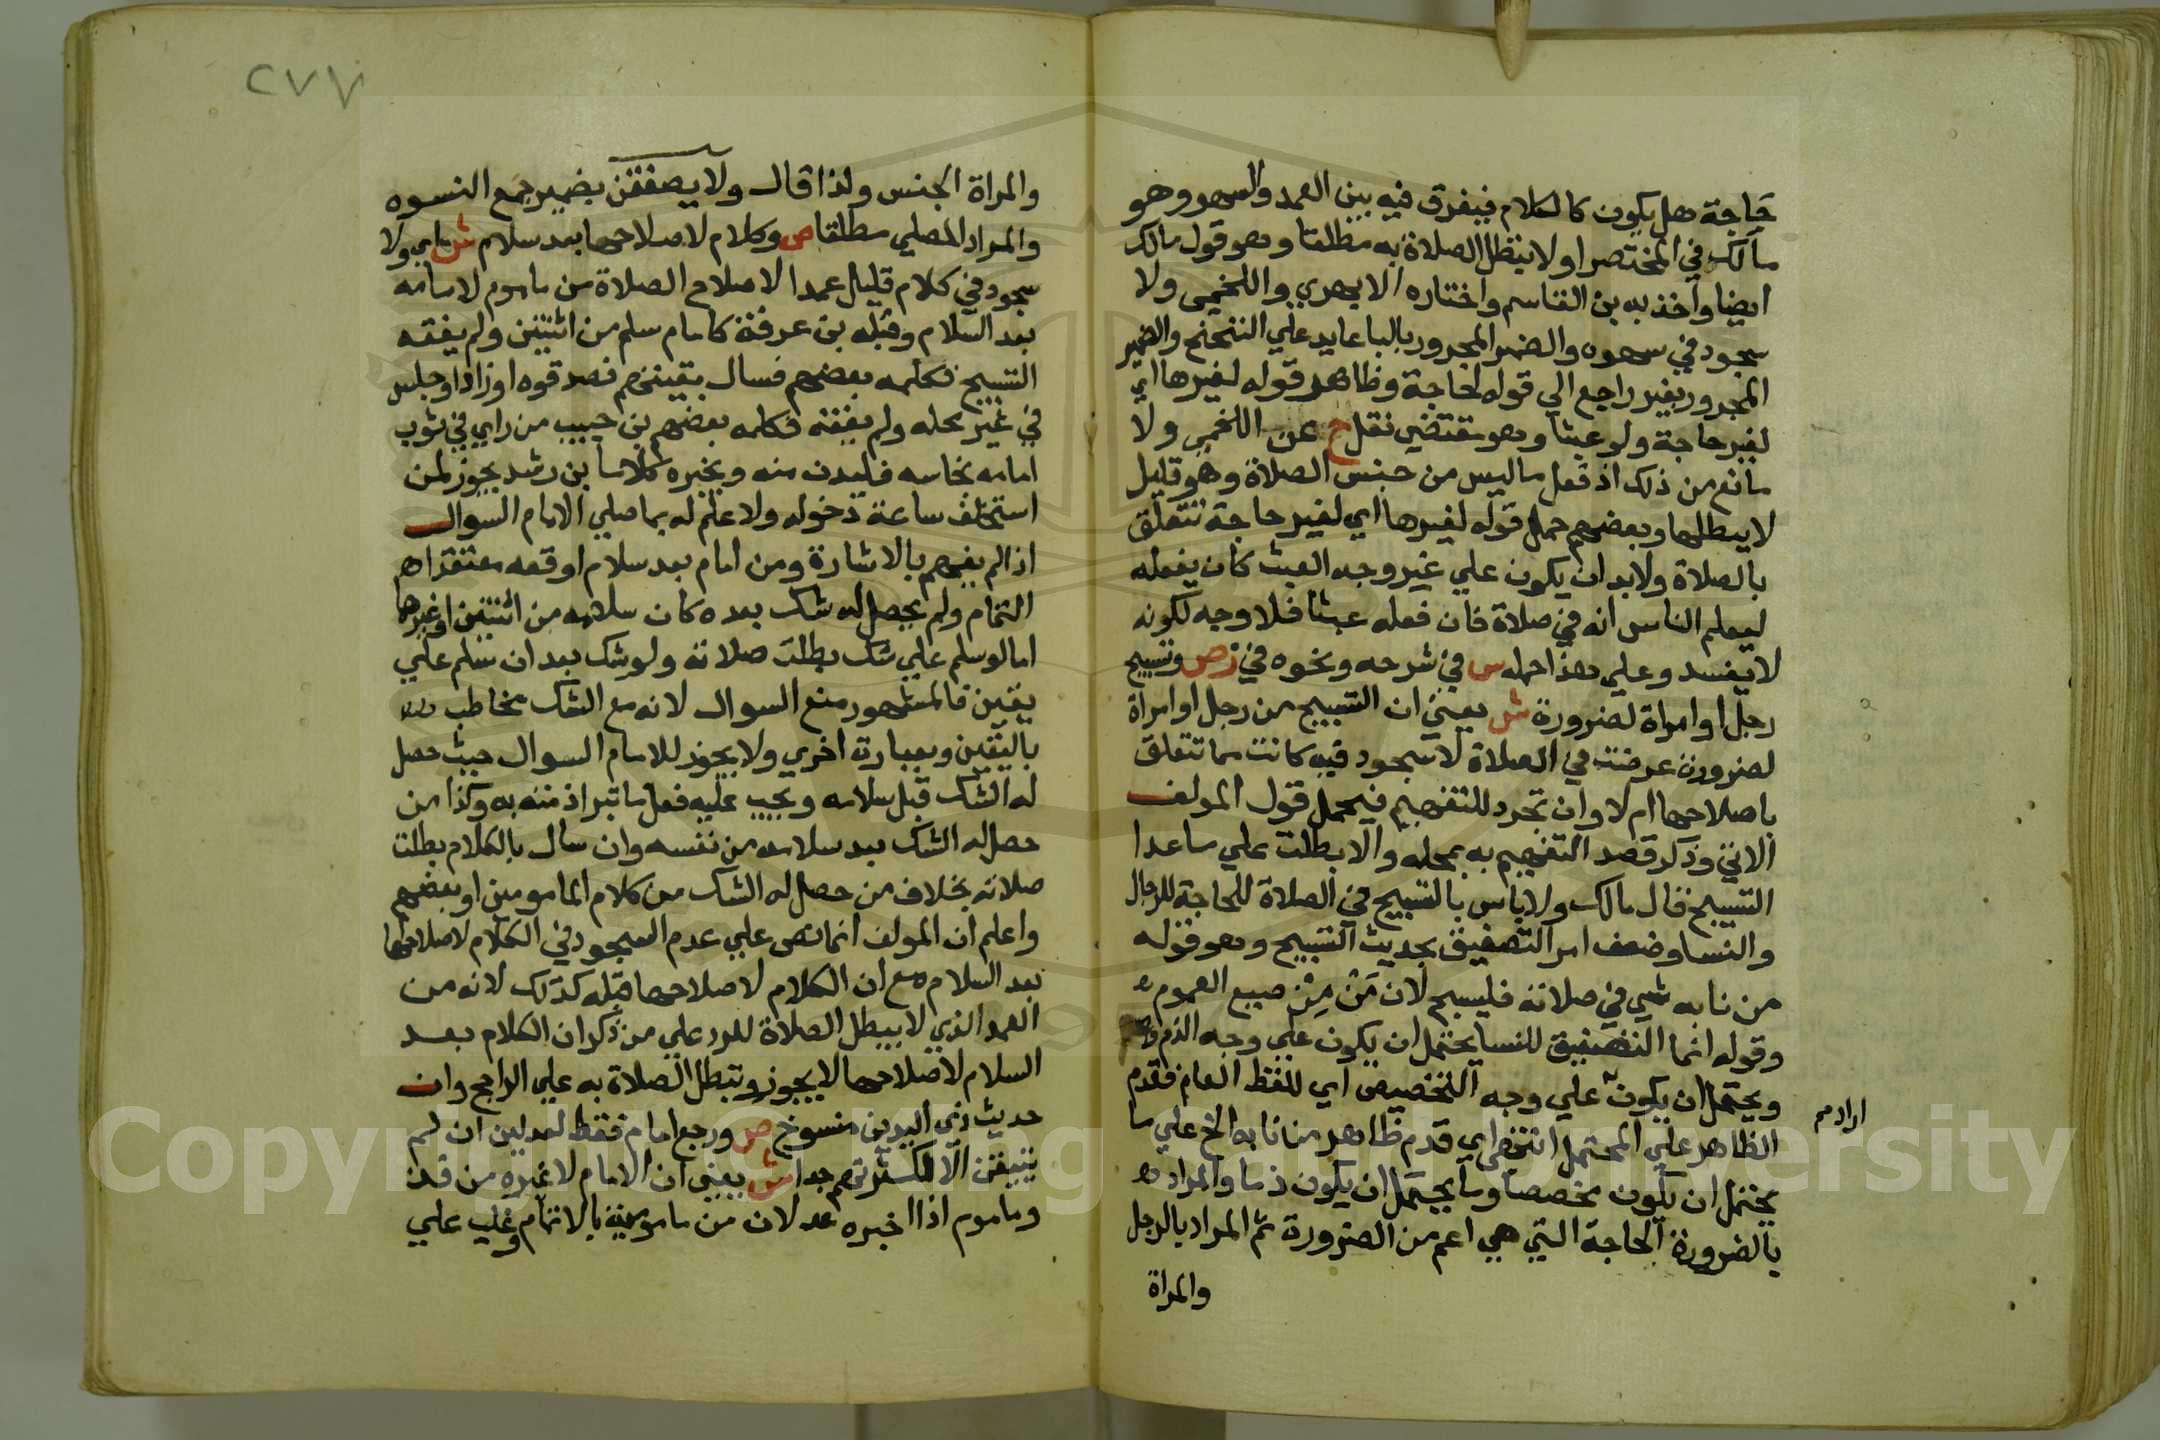 حاجة هل يكون كالكلام فيفرق فيه بين العمد والسهو وهو
مالك في المختصر او لا تبطل الصلاة به مطلقا وهو قول مالك
ايضا واخذ به بن القاسم واختاره الابهري واللخمي ولا
سجود في سهوه والضمير المجرور بالبا عايد علي التنحنح والضمير
المجرور بغير راجع الي قوله لحاجة وظاهر قوله لغيرها اي
لغير حاجة ولو عبثا وهو مقتضي نقل ح عن اللخمي ولا
مانع من ذلك اذ فعل ما ليس من جنس الصلاة وهو قليل
لا يبطلها وبعضهم حمل قوله لغيرها اي لغير حاجة تتعلق
بالصلاة ولا بد ان يكون علي غير وجه العبث كان يفعله
ليعلم الناس انه في صلاة فان فعله عبثا فلا وجه لكونه
لا يفسد وعلي هذا حمله س في شرحه ونحوه في ز ص وتسبيح
رجل او امراة لضرورة ش يعني ان التسبيح من رجل او امراة
لضرورة عرضت في الصلاة لا سجود فيه كانت مما تتعلق
باصلاحها ام لا وان تجرد للتفهيم فيحمل قول المولف
الاتي وذكر قصد التفهيم به بمحله والا بطلت علي ما عدا
التسبيح فقال مالك ولا باس بالتسبيح في الصلاة للحاجة للرجال
والنسا وضعف امر التصفيق بحديث التسبيح وهو قوله
من نابه شي في صلاته فليسبح لان من من صيغ العموم
وقوله انما التصفيق للنسا يحتمل ان يكون علي وجه الذم
ويحتمل ان يكون علي وجه التخصيص اي للفظ العام فقدم
ارادهم
الظاهر علي المحتمل انتهي اي قدم ظاهر من نابه الخ علي ما
يحتمل ان يكون مخصصا وما يحتمل ان يكون ذما والمراد
بالضرورة الحاجة التي هي اعم من الضرورة ثم المراد بالرجل
والمراة
٢٧٧
والمراة الجنس ولذا قال ولا يصفقن بضمير جمع النسوه
والمراد المصلي مطلقا ص وكلام لاصلاحها بعد سلام ش اي ولا
سجود في كلام قليل عمدا لاصلاح الصلاة من ماموم لامامه
بعد السلام وقبله بن عرفة كامام سلم من اثنتين ولم يفقه
التسبيح فكلمه بعضهم فسال بقيتهم فصدقوه او زاد او جلس
في غير محله ولم يفقه فكلمه بعضهم بن حبيب من راي في ثوب
امامه نجاسه فليدن منه ويخبره كلاما بن رشد يجوز لمن
استخلف ساعة دخوله ولا علم له بما صلي الامام السوال
اذا لم يفهم بالاشارة ومن امام بعد سلام اوقعه معتقدا هم
التمام ولم يحصل له شك بعده كان سلامه من اثنتين او غيرها
اما لو سلم علي شك بطلت صلاته ولو شك بعد ان سلم علي
يقين فالمشهور منع السوال لانه مع الشك مخاطب
باليقين وبعبارة اخري ولا يجوز للامام السوال حيث حصل
له الشك قبل سلامه ويجب عليه فعل ما تبرا ذمته به وكذا من
حصل له الشك بعد سلامه من نفسه وان سال بالكلام بطلت
صلاته بخلاف من حصل له الشك من كلام المامومين او بعضهم
واعلم ان المولف انما نص علي عدم السجود في الكلام لاصلاحها
بعد السلام مع ان الكلام لاصلاحها قبله كذلك لانه من
العمد الذي لا يبطل الصلاة للرد علي من ذكر ان الكلام بعد
السلام لاصلاحها لا يجوز وتبطل الصلاة به علي الراجح وان
حديث ذي اليدين منسوخ ص ورجع امام فقط لعدلين ان لم
يتيقن الا لكثرتهم جدا ش يعني ان الامام لا غيره من فذ
وماموم اذا اخبره عدلان من مامومية بالاتمام وغلب علي
Copyright © King Saud University